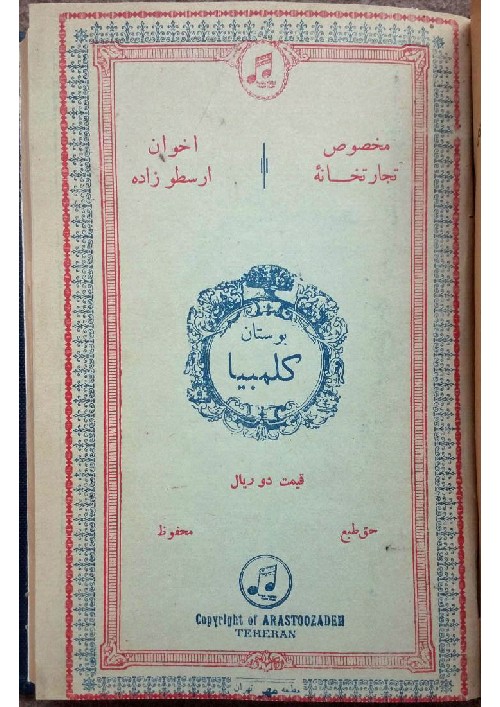 مخصوص اخوان
تجارتخانهٔ ارسطوزاده
بوستان
کلمبیا
قیمت دو ریال
حق طبع محفوظ
Copyright of ARASTOOZADEH
TEHERAN